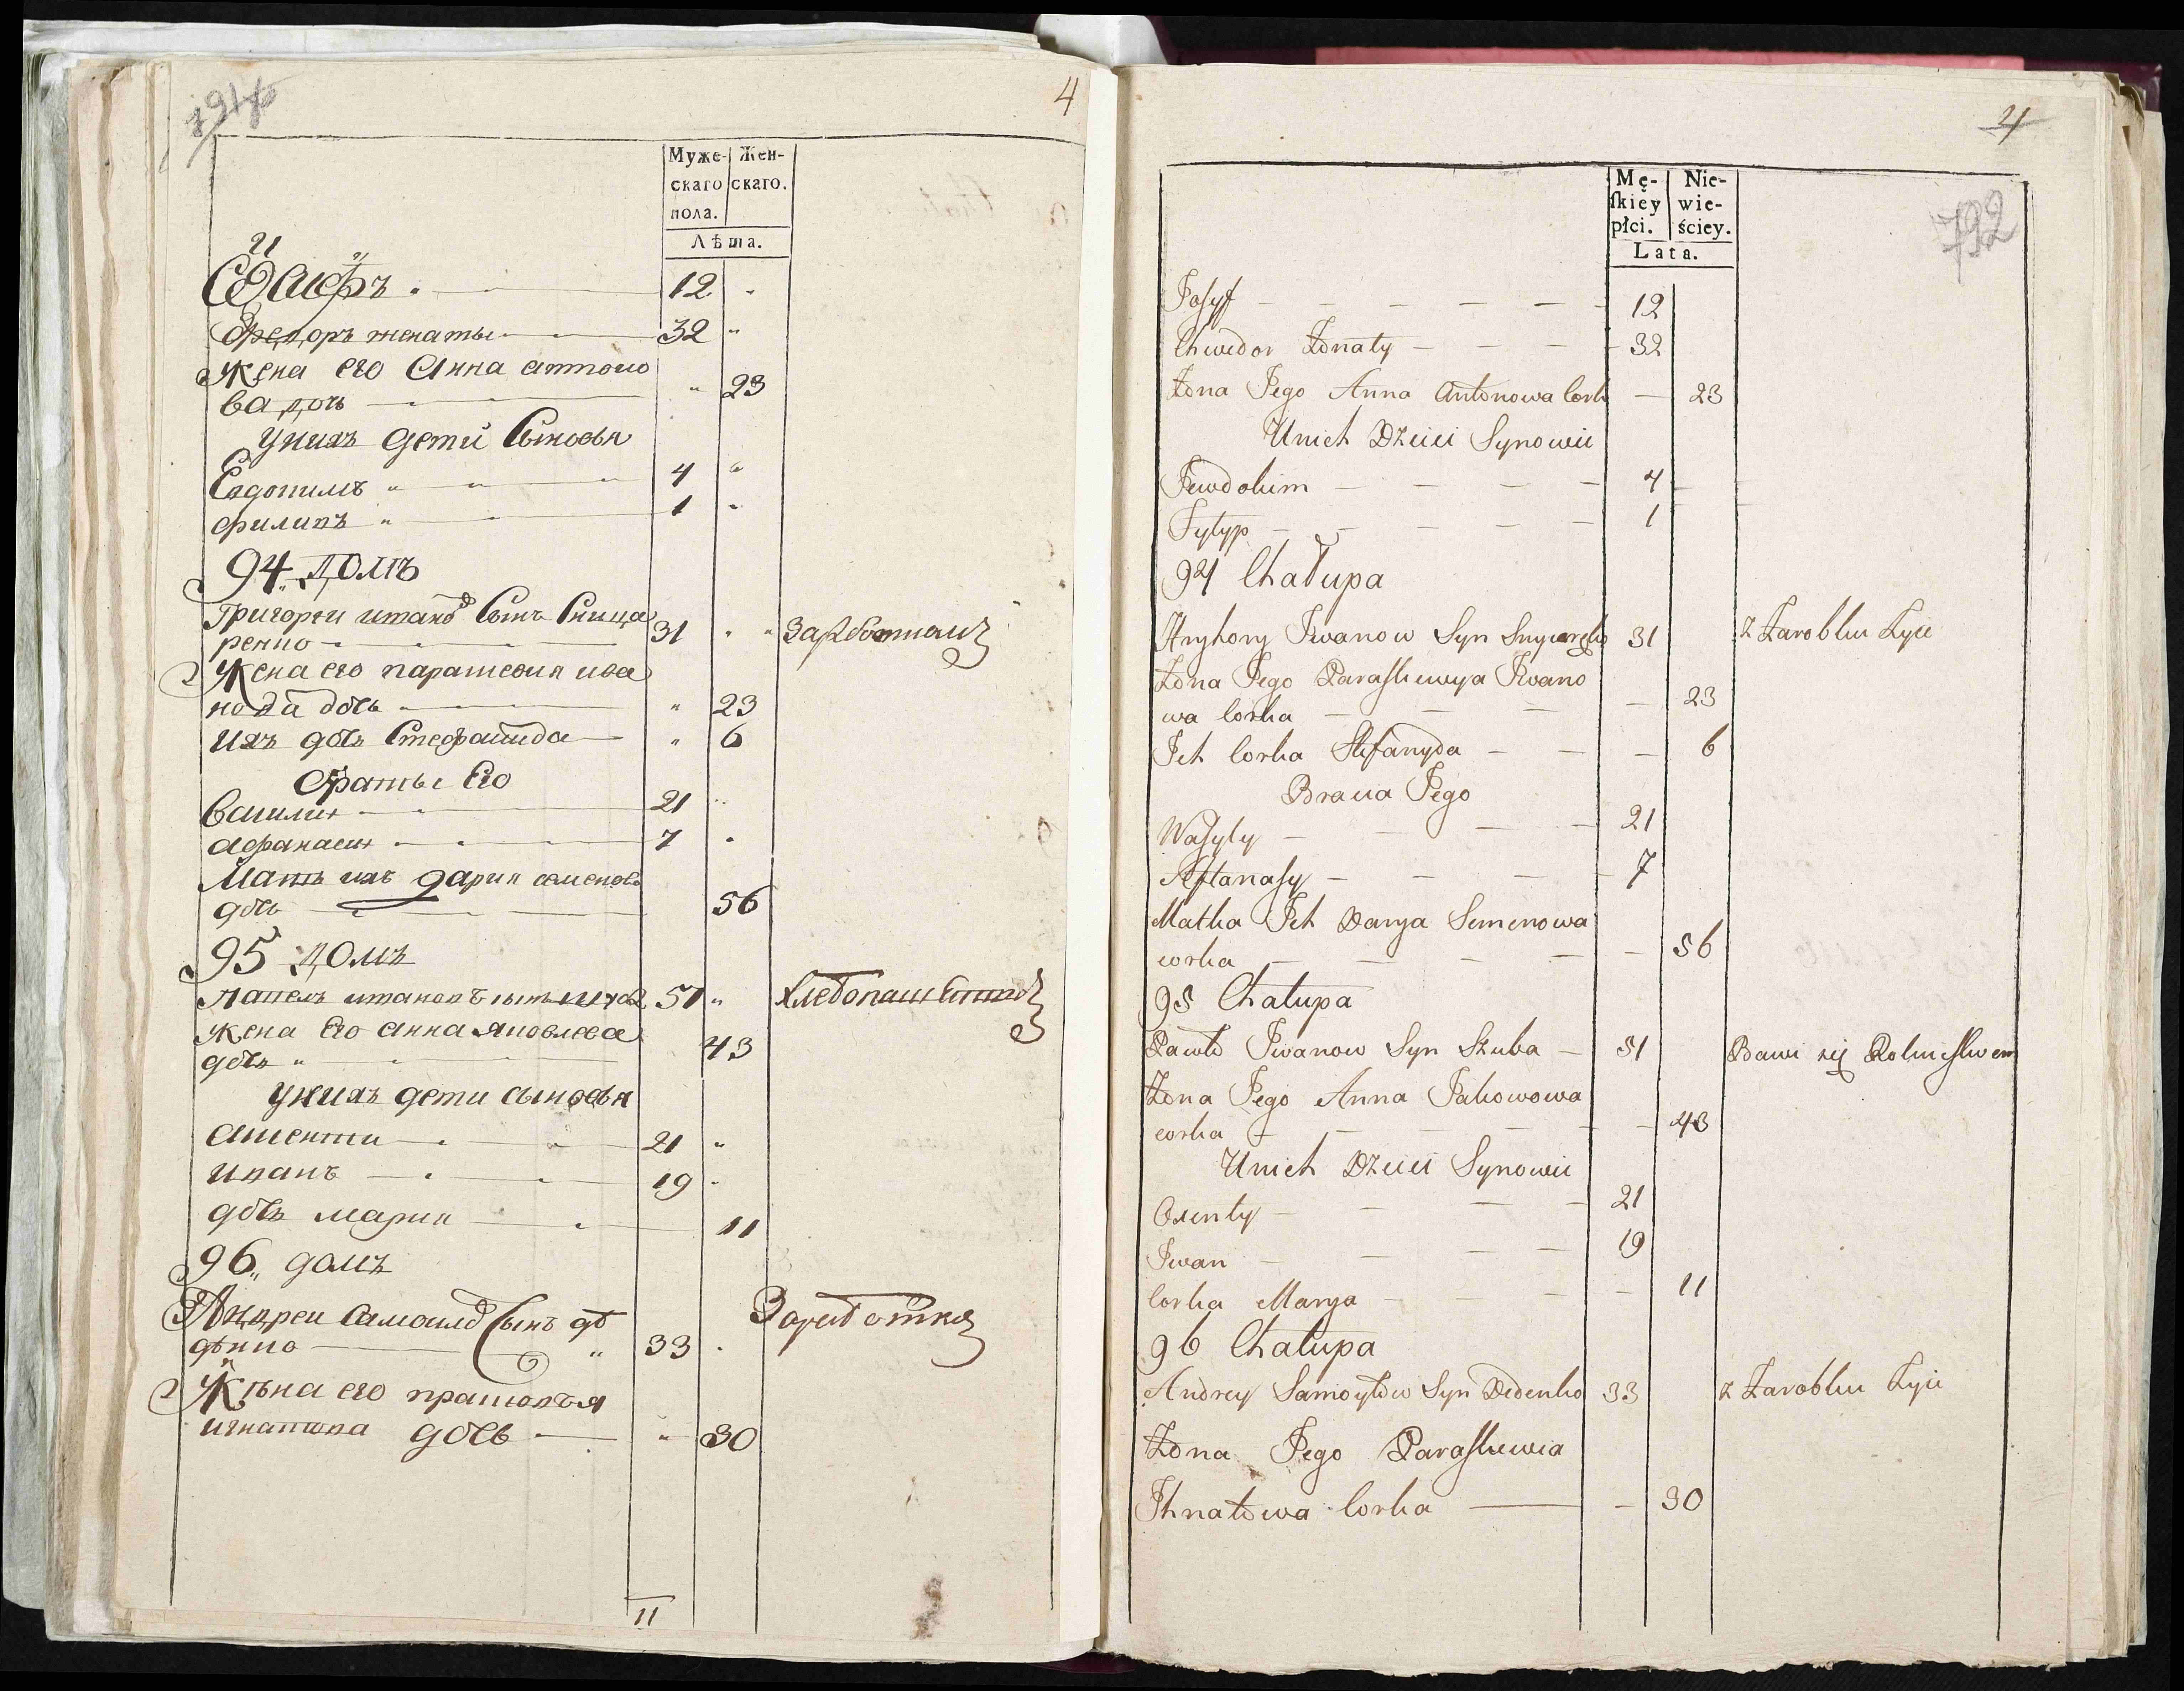 4
Муже- Жен-
скаго скаго.
пола.
Лѣта.
12
Федоръ женаты 32
жена его Анна антоно
ва дочь 23
унихъ дети Сыновья
Евдокимъ 4
филипъ 1
94 домъ
Григореи иванов Сынъ Сница
ренко 31 Заработкомъ
Жена его парасковия ива
нова дочь 23
ихъ дочь Стефанида 6
братье Его
василии 21
афанасии 7
Мать ихъ дария семенова
дочь 56
95 домъ
павелъ иванов сынъ 51
жена Его анна яковлева
дочь 43
унихъ дети сыновья
21
иванъ 19
дочь мария 11
96 домъ
Андреи Самоилов Сынъ де
денко 33 Заработка
Жена его
игнатова дочь 30
11
4
792
Mę- Nie-
ſkiey wie-
płci. ściey.
Lata.
Josyf 12
Chwedor Żonaty 32
Żona Jego Anna Antonowa Cork 23
Unich Dzieci Synowie
Jewdokim 4
Fylyp 1
94 Chałupa
Hryhory Iwanow Syn Snycaręko 31 z Zarobku Żyie
Żona Jego Paraskiewya Iwano
wa Corka 23
Ich Corka Stefanyda 6
Bracia Jego
Wasyly 21
Aftanasy 7
Matka Ich Darya Semenowa
corka 56
95 Chałupa
Pawło Iwanow Syn Szuba 51 Bawi się Rolnictwem
Żona Jego Anna Jakowowa
corka 43
Unich Dzieci Synowie
Oxenty 21
Iwan 19
Corka Marya 11
96 Chałupa
Andrey Samoyłow Syn Dedenko 33 z Zarobku Żyie
Żona Jego Paraskiewia
Ihnatowa Corka 30